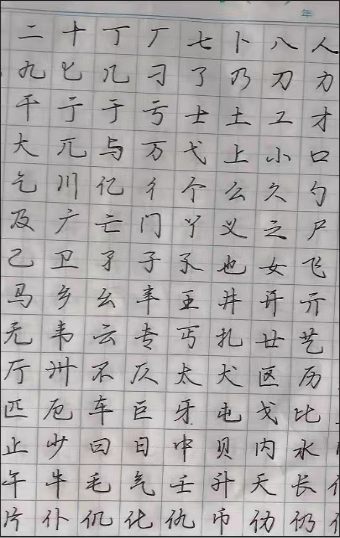 年
二十丁厂七卜八人
九匕几刁了乃刀力
干亍于亏士土工才
大兀与万弋上小口
乞川亿彳个么久勺
及广亡门丫义之尸
己卫孑子孓也女飞
马乡幺丰王井开亓
无韦云专丐扎廿艺
厅卅不仄太犬区历
匹厄车巨牙屯戈比
止少曰日中贝内水
午牛毛气壬升天长
片仆仉化仇币仂仍